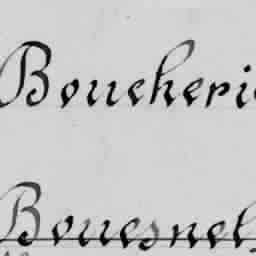 Boucheri
Bouesnel